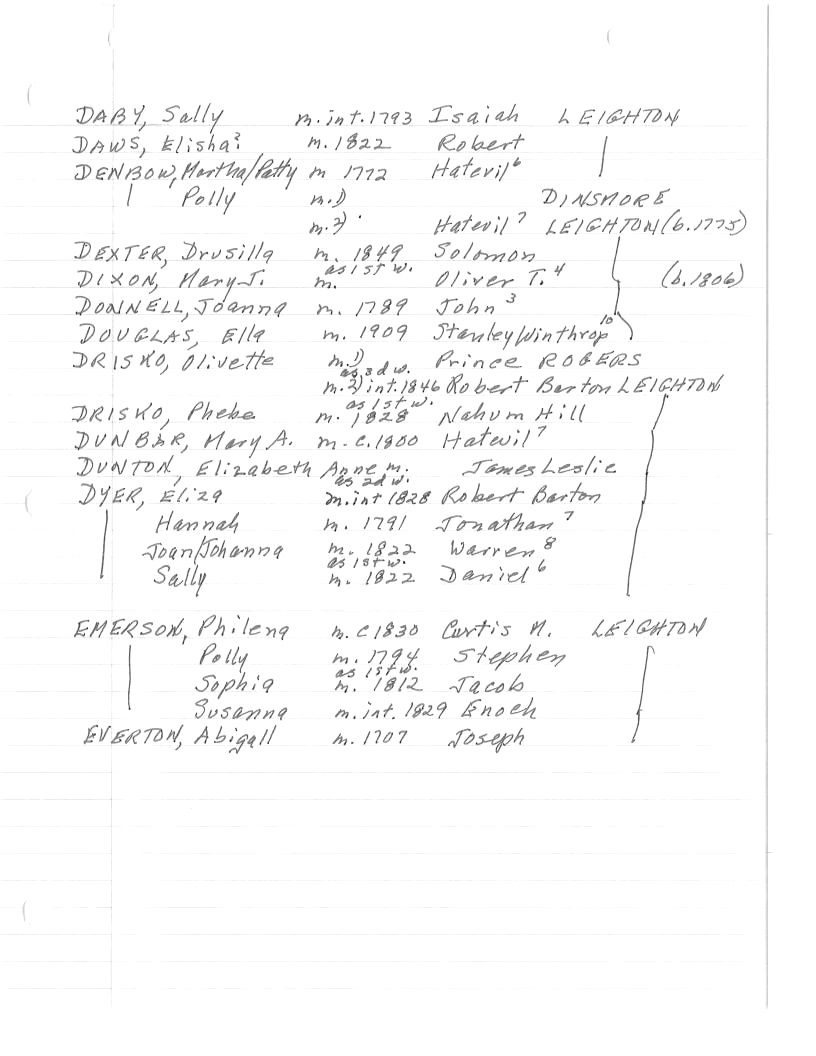 DABY, Sally m. int. 1793 Isaiah LEIGHTON
DAWS, Elisha? m. 1822 Robert
DENBOW, Martha/Patty m 1772 Hatevil⁶
Polly m. 1) DINSMORE
m. 2) Hatevil⁷ LEIGHTON (b. 1775)
DEXTER, Drusilla m. 1849 Solomon
as 1st w.
DIXON, Mary J. m. Oliver T.⁴ (b. 1806)
DONNELL, Joanna m. 1789 John³
DOUGLAS, Ella m. 1909 Stanley Winthrop¹⁰
DRISKO, Olivette m. 1) Prince ROGERS
as 3d w.
m. 2) int. 1846 Robert Barton LEIGHTON
as 1st w.
DRISKO, Phebe m. 1828 Nahum Hill
DUNBAR, Mary A. m. c. 1800 Hatevil⁷
DUNTON, Elizabeth Anne m. James Leslie
as 2d w.
DYER, Eliza m. int 1828 Robert Barton
Hannah m. 1791 Jonathan⁷
Joan/Johanna m. 1822 Warren⁸
as 1st w.
Sally m. 1822 Daniel⁶
EMERSON, Philena m. c 1830 Curtis M. LEIGHTON
Polly m. 1794 Stephen
as 1st w.
Sophia m. 1812 Jacob
Susanna m. int. 1829 Enoch
EVERTON, Abigall m. 1707 Joseph